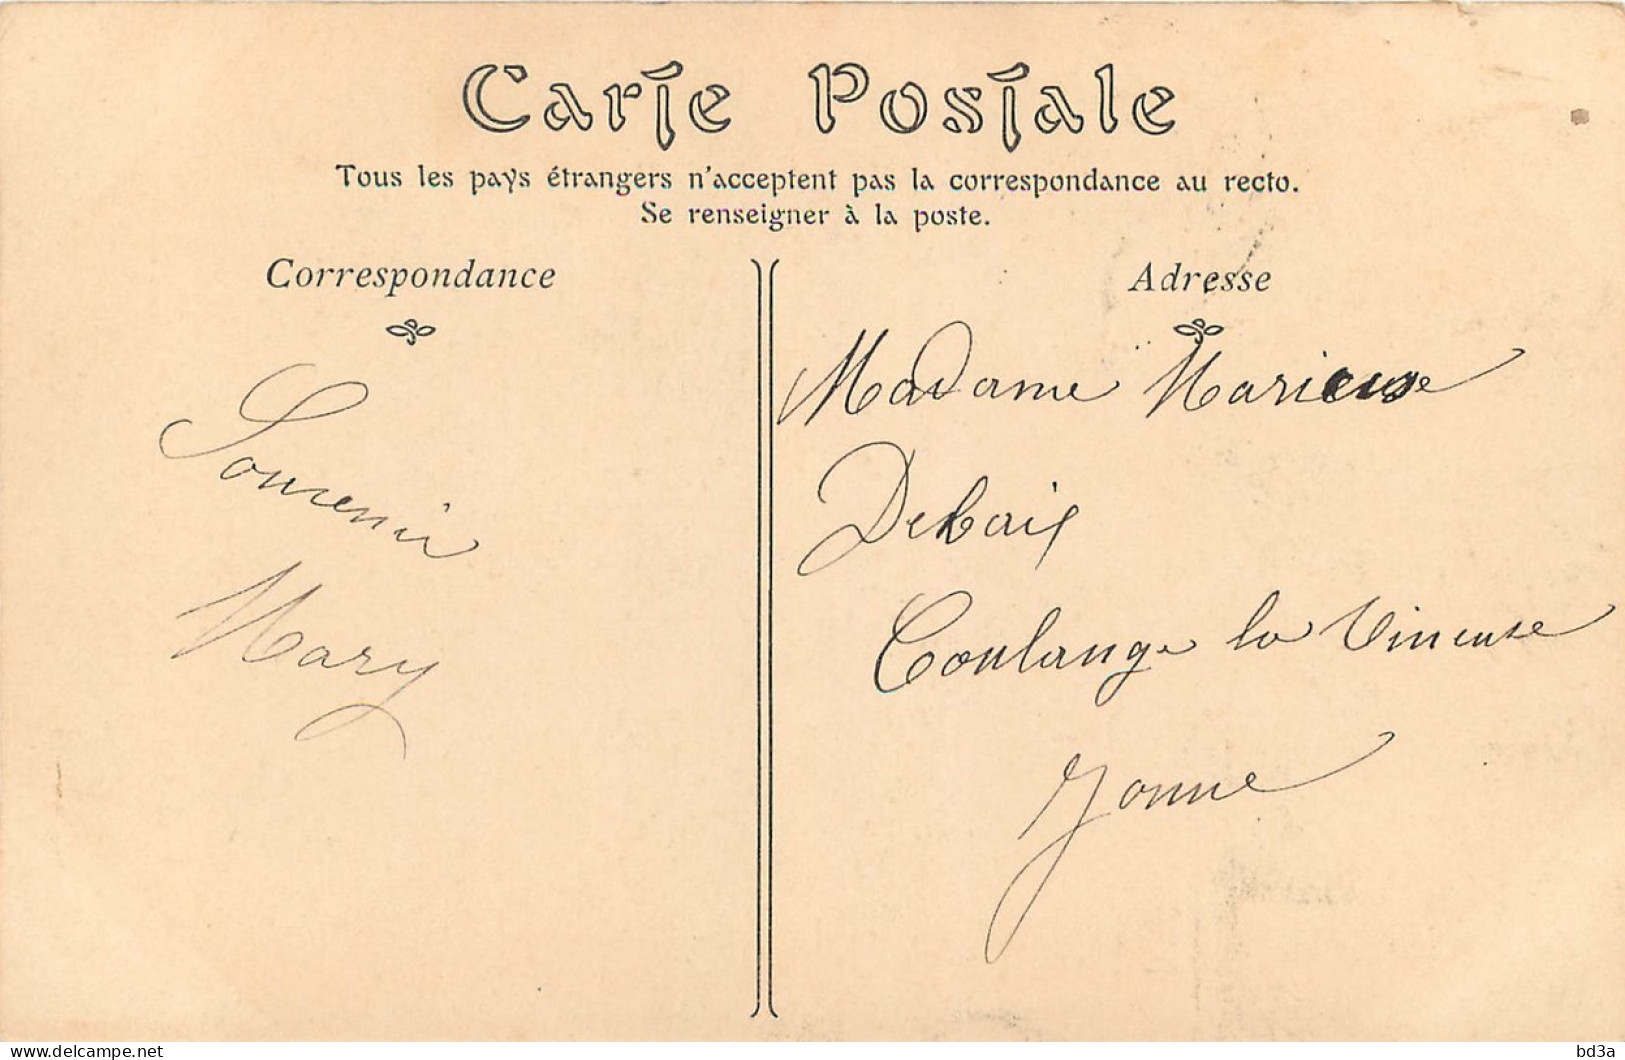 Carte Postale
Tous les pays étrangers n'acceptent pas la correspondance au recto.
Se renseigner à la poste.
Correspondance
Souvenir
Mary
Adresse
Madame
Debaix
Coulange la Vineuse
Yonne
www.delcampe.net
bd3a